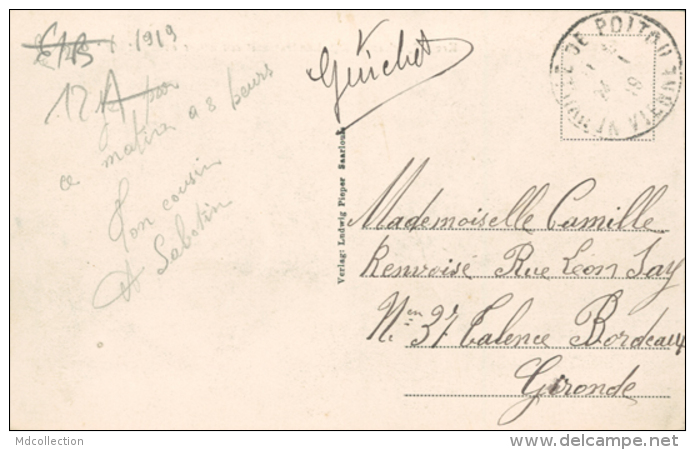 1919
ce matin a 8 heurs
Ton cousin
A Sabotin
Guichet
VIENNE
DE POITOU
Verlag: Ludwig Pieper Saarlouis
Mademoiselle Camille
Renvoisé Rue Léon Say
37 Talence Bordeaux
Gironde
Mdcollection
delcampe.net